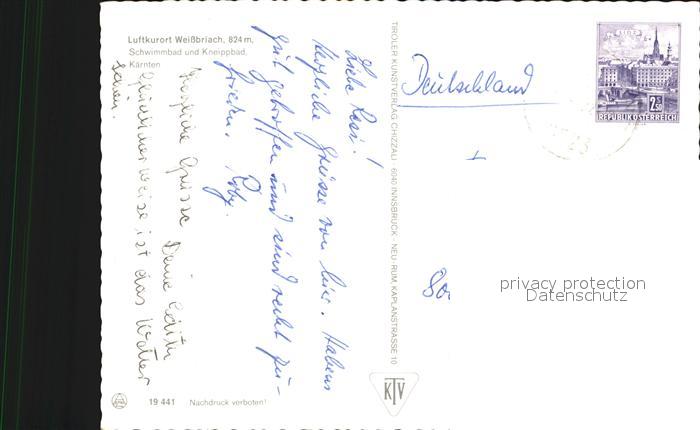 Luftkurort Weißbriach, 824 m,
Schwimmbad und Kneippbad,
Kärnten
Liebe Resi!
Herzliche Grüsse von hier. Haben
gut getroffen und sind recht zu-
frieden.
Herzliche Grüsse Deine Edith
Glücklicherweise ist das Wetter
schön.
19 441 Nachdruck verboten!
TIROLER KUNSTVERLAG CHIZZALI · 6040 INNSBRUCK - NEU-RUM, KAPLANSTRASSE 10
KTV
Deutschland
LINZ
2.50
REPUBLIK ÖSTERREICH
privacy protection
Datenschutz